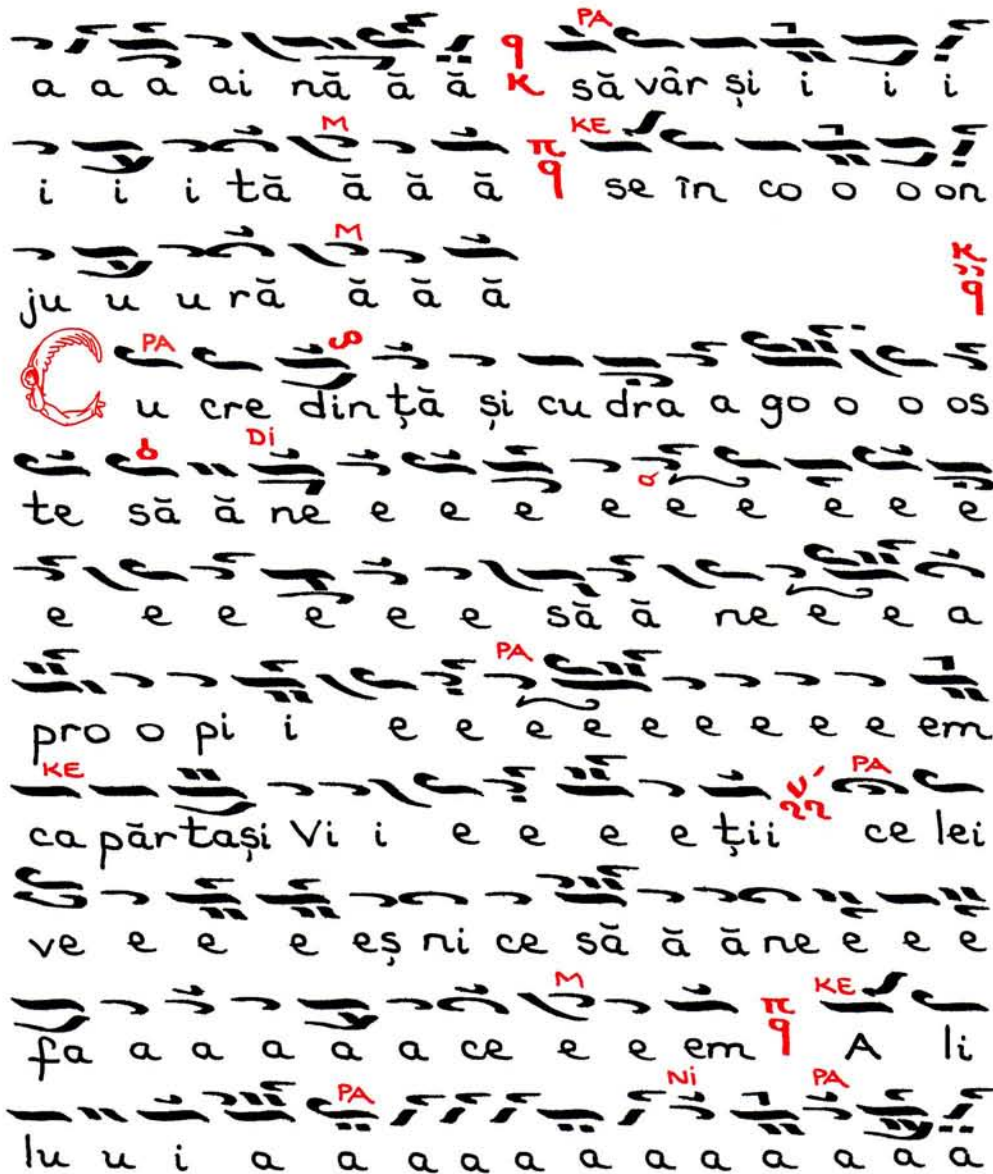 PA
a a a ai nă ă ă K să vâr și i i i
M KE
i i i tă ă ă ă π q se în co o o on
M K
ju u u ură ă ă ă q
PA
C u cre din ță și cu dra a go o o os
Di
te să ă ne e e e e e e e e e
e e e e e e să ă ne e e a
PA
pro o pi i e e e e e e e e em
KE PA
ca păr tași Vi i e e e e ții ce lei
ve e e e eș ni ce să ă ă ne e e e
M KE
fa a a a a a ce e e em π q A li
PA Ni PA
lu u i a a a a a a a a a a a